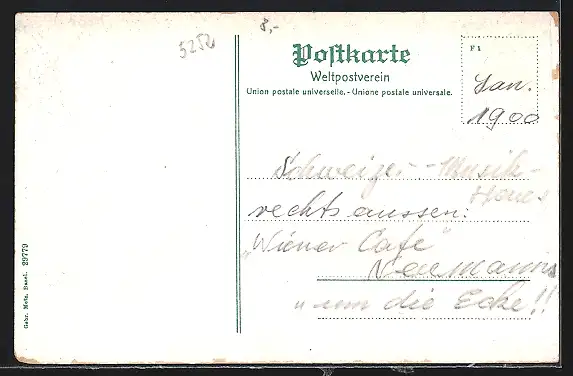 5252
8,-
Postkarte
Weltpostverein
Union postale universelle. - Unione postale universale.
F 1
Jan.
1900
Schweizer-Musik-
Haus
rechts aussen:
"Wiener Cafe"
Neumanns
"um die Ecke!!
Gebr. Metz, Basel. 29779